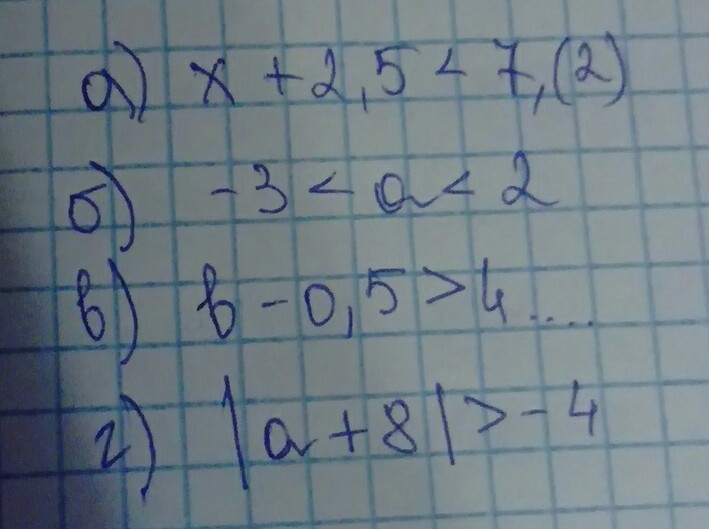 а) x + 2,5 < 7,(2)
б) -3 < a < 2
в) b - 0,5 > 4....
г) |a + 8| > -4